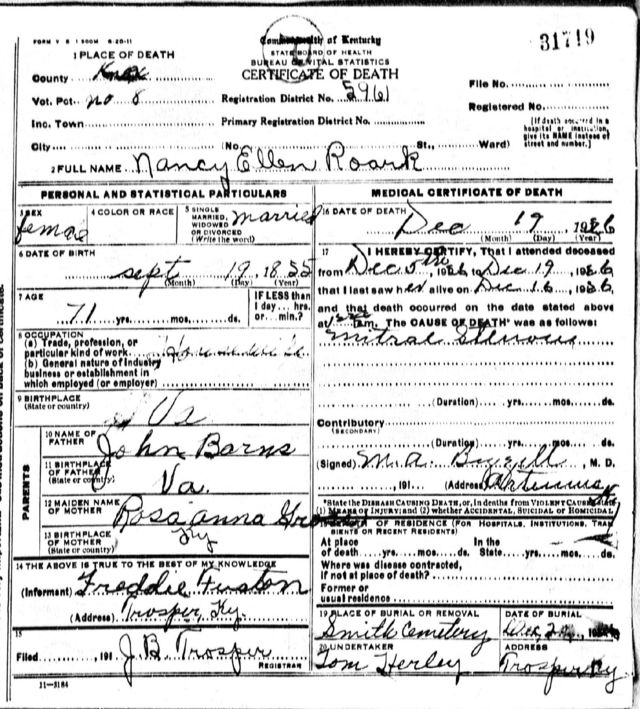 FORM V S 1 500M 6-20-11
Commonwealth of Kentucky
STATE BOARD OF HEALTH
BUREAU OF VITAL STATISTICS
CERTIFICATE OF DEATH
31719
1 PLACE OF DEATH
County Knox
Vot. Pct. No 8
Inc. Town
City
Registration District No. 5961
Primary Registration District No.
(No. St., Ward)
File No.
Registered No.
[If death occurred in a hospital or institution, give its NAME instead of street and number.]
2 FULL NAME Nancy Ellen Roark
PERSONAL AND STATISTICAL PARTICULARS
3 SEX female
4 COLOR OR RACE
5 SINGLE MARRIED, WIDOWED OR DIVORCED (Write the word) married
6 DATE OF BIRTH
Sept 19 1855
(Month) (Day) (Year)
7 AGE
71 yrs. mos. ds.
IF LESS than 1 day... hrs. or... min.?
8 OCCUPATION
(a) Trade, profession, or
particular kind of work
(b) General nature of industry
business or establishment in
which employed (or employer)
9 BIRTHPLACE
(State or country) Va
PARENTS
10 NAME OF FATHER John Barns
11 BIRTHPLACE OF FATHER (State or country) Va.
12 MAIDEN NAME OF MOTHER Rosa anna
13 BIRTHPLACE OF MOTHER (State or country) Ky
14 THE ABOVE IS TRUE TO THE BEST OF MY KNOWLEDGE
(Informant) Freddie Fuston
(Address) Trosper, Ky.
15
Filed, 191 J.B. Trosper
REGISTRAR
11-3184
MEDICAL CERTIFICATE OF DEATH
16 DATE OF DEATH
Dec 19 1926
(Month) (Day) (Year)
17 I HEREBY CERTIFY, That I attended deceased
from Dec 5th, 1926 to Dec 19, 1926
that I last saw her alive on Dec 16, 1926
and that death occurred on the date stated above
at am. The CAUSE OF DEATH* was as follows:
mitral Stenosis
(Duration) yrs. mos. ds.
Contributory
(SECONDARY)
(Duration) yrs. mos. ds.
(Signed) M.A., M. D.
, 191 (Address) Artemus
*State the DISEASE CAUSING DEATH, or, in deaths from VIOLENT CAUSES, state
(1) MEANS OF INJURY; and (2) whether ACCIDENTAL, SUICIDAL or HOMICIDAL
OF RESIDENCE (FOR HOSPITALS, INSTITUTIONS, TRANSIENTS OR RECENT RESIDENTS)
At place of death yrs. mos. ds. In the State yrs. mos. ds.
Where was disease contracted,
If not at place of death?
Former or
usual residence
19 PLACE OF BURIAL OR REMOVAL
Smith Cemetery
DATE OF BURIAL
20 UNDERTAKER
Tom Herley
ADDRESS
Trosper Ky